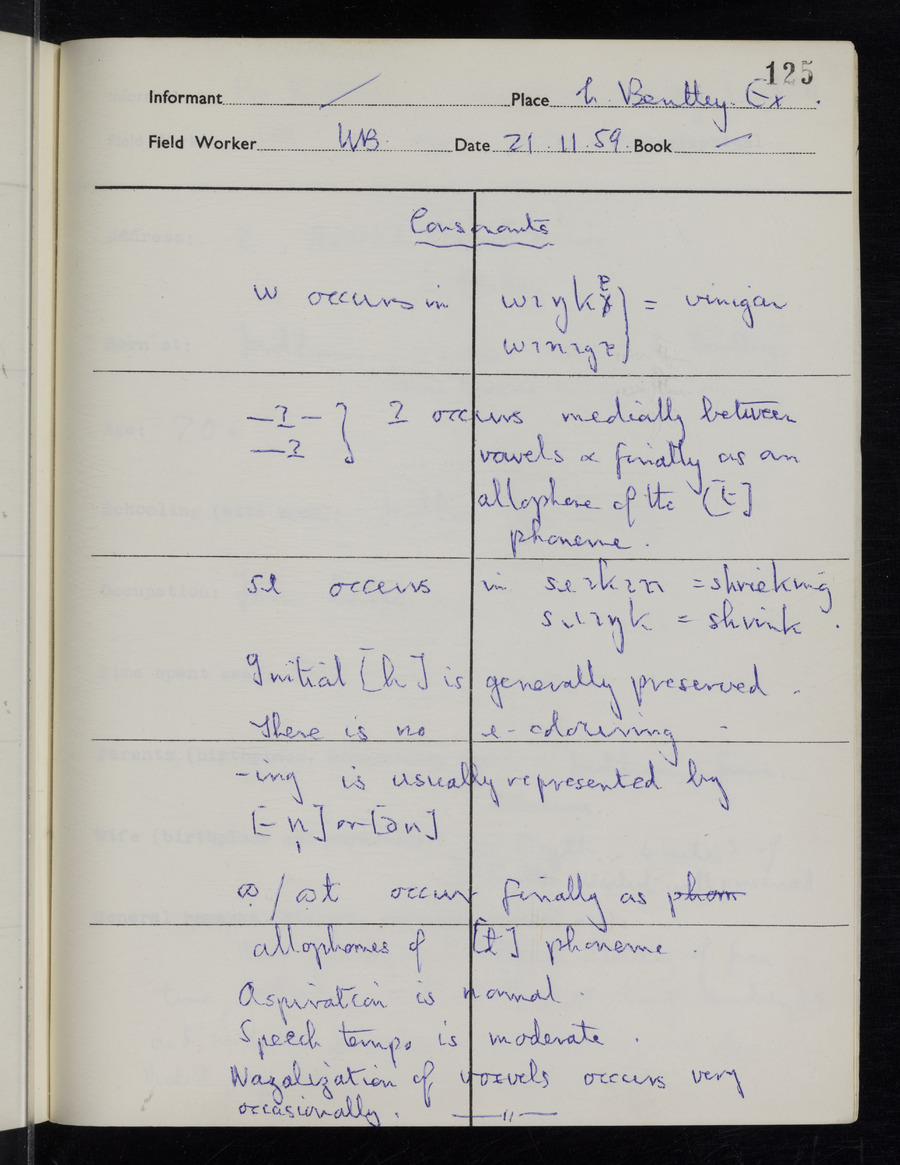 125
Informant / Place L. Bentley. Ex.
Field Worker WB. Date 21.11.59. Book /
Consonants
w occurs in
= vinigar
—ʔ— } ʔ occurs medially between
—ʔ vowels & finally as an
allophone of the [t]
phoneme.
occurs in = shrieking
= shrink.
Initial [h] is generally preserved.
There is no r-colouring.
-ing is usually represented by
[-n̩] or [ən]
occur finally as phom
allophones of [ɫ] phoneme.
Aspiration is normal.
Speech tempo is moderate.
Nazalization of vowels occurs very
occasionally. —"—